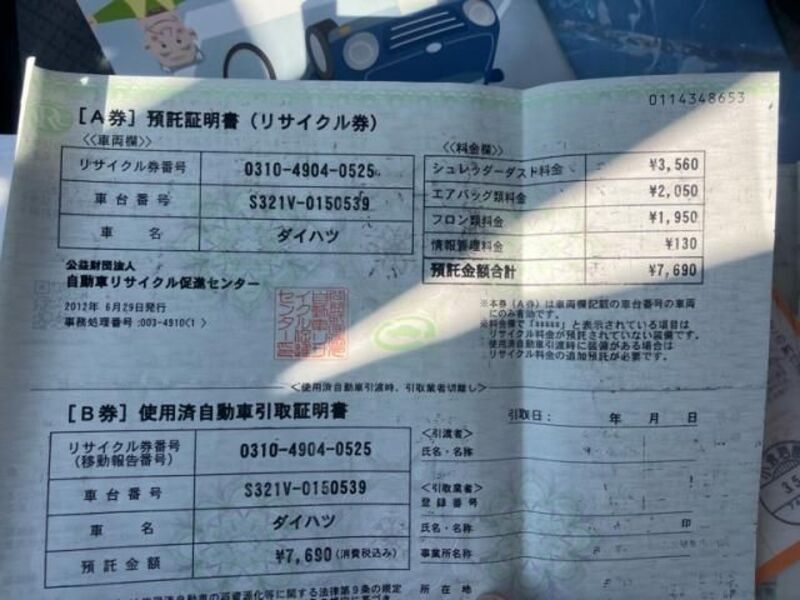 0114348653
[A券] 預託証明書(リサイクル券)
<<車両欄>>
リサイクル券番号 0310-4904-0525
車台番号 S321V-0150539
車名 ダイハツ
公益財団法人
自動車リサイクル促進センター
2012年 6月29日発行
事務処理番号:003-4910(1 )
<<料金欄>>
シュレッダーダスト料金 ¥3,560
エアバッグ類料金 ¥2,050
フロン類料金 ¥1,950
情報管理料金 ¥130
預託金額合計 ¥7,690
※本券(A券)は車両欄記載の車台番号の車両
にのみ有効です。
※料金欄で「*****」と表示されている項目は
リサイクル料金が預託されていない装備です。
使用済自動車引渡時に装備がある場合は
リサイクル料金の追加預託が必要です。
<使用済自動車引渡時、引取業者切離し>
[B券] 使用済自動車引取証明書
リサイクル券番号
(移動報告番号) 0310-4904-0525
車台番号 S321V-0150539
車名 ダイハツ
預託金額 ¥7,690(消費税込み)
引取日: 年 月 日
<引渡者>
氏名・名称
<引取業者>
登録番号
氏名・名称 印
事業所名称
所在地
使用済自動車の再資源化等に関する法律第9条の規定